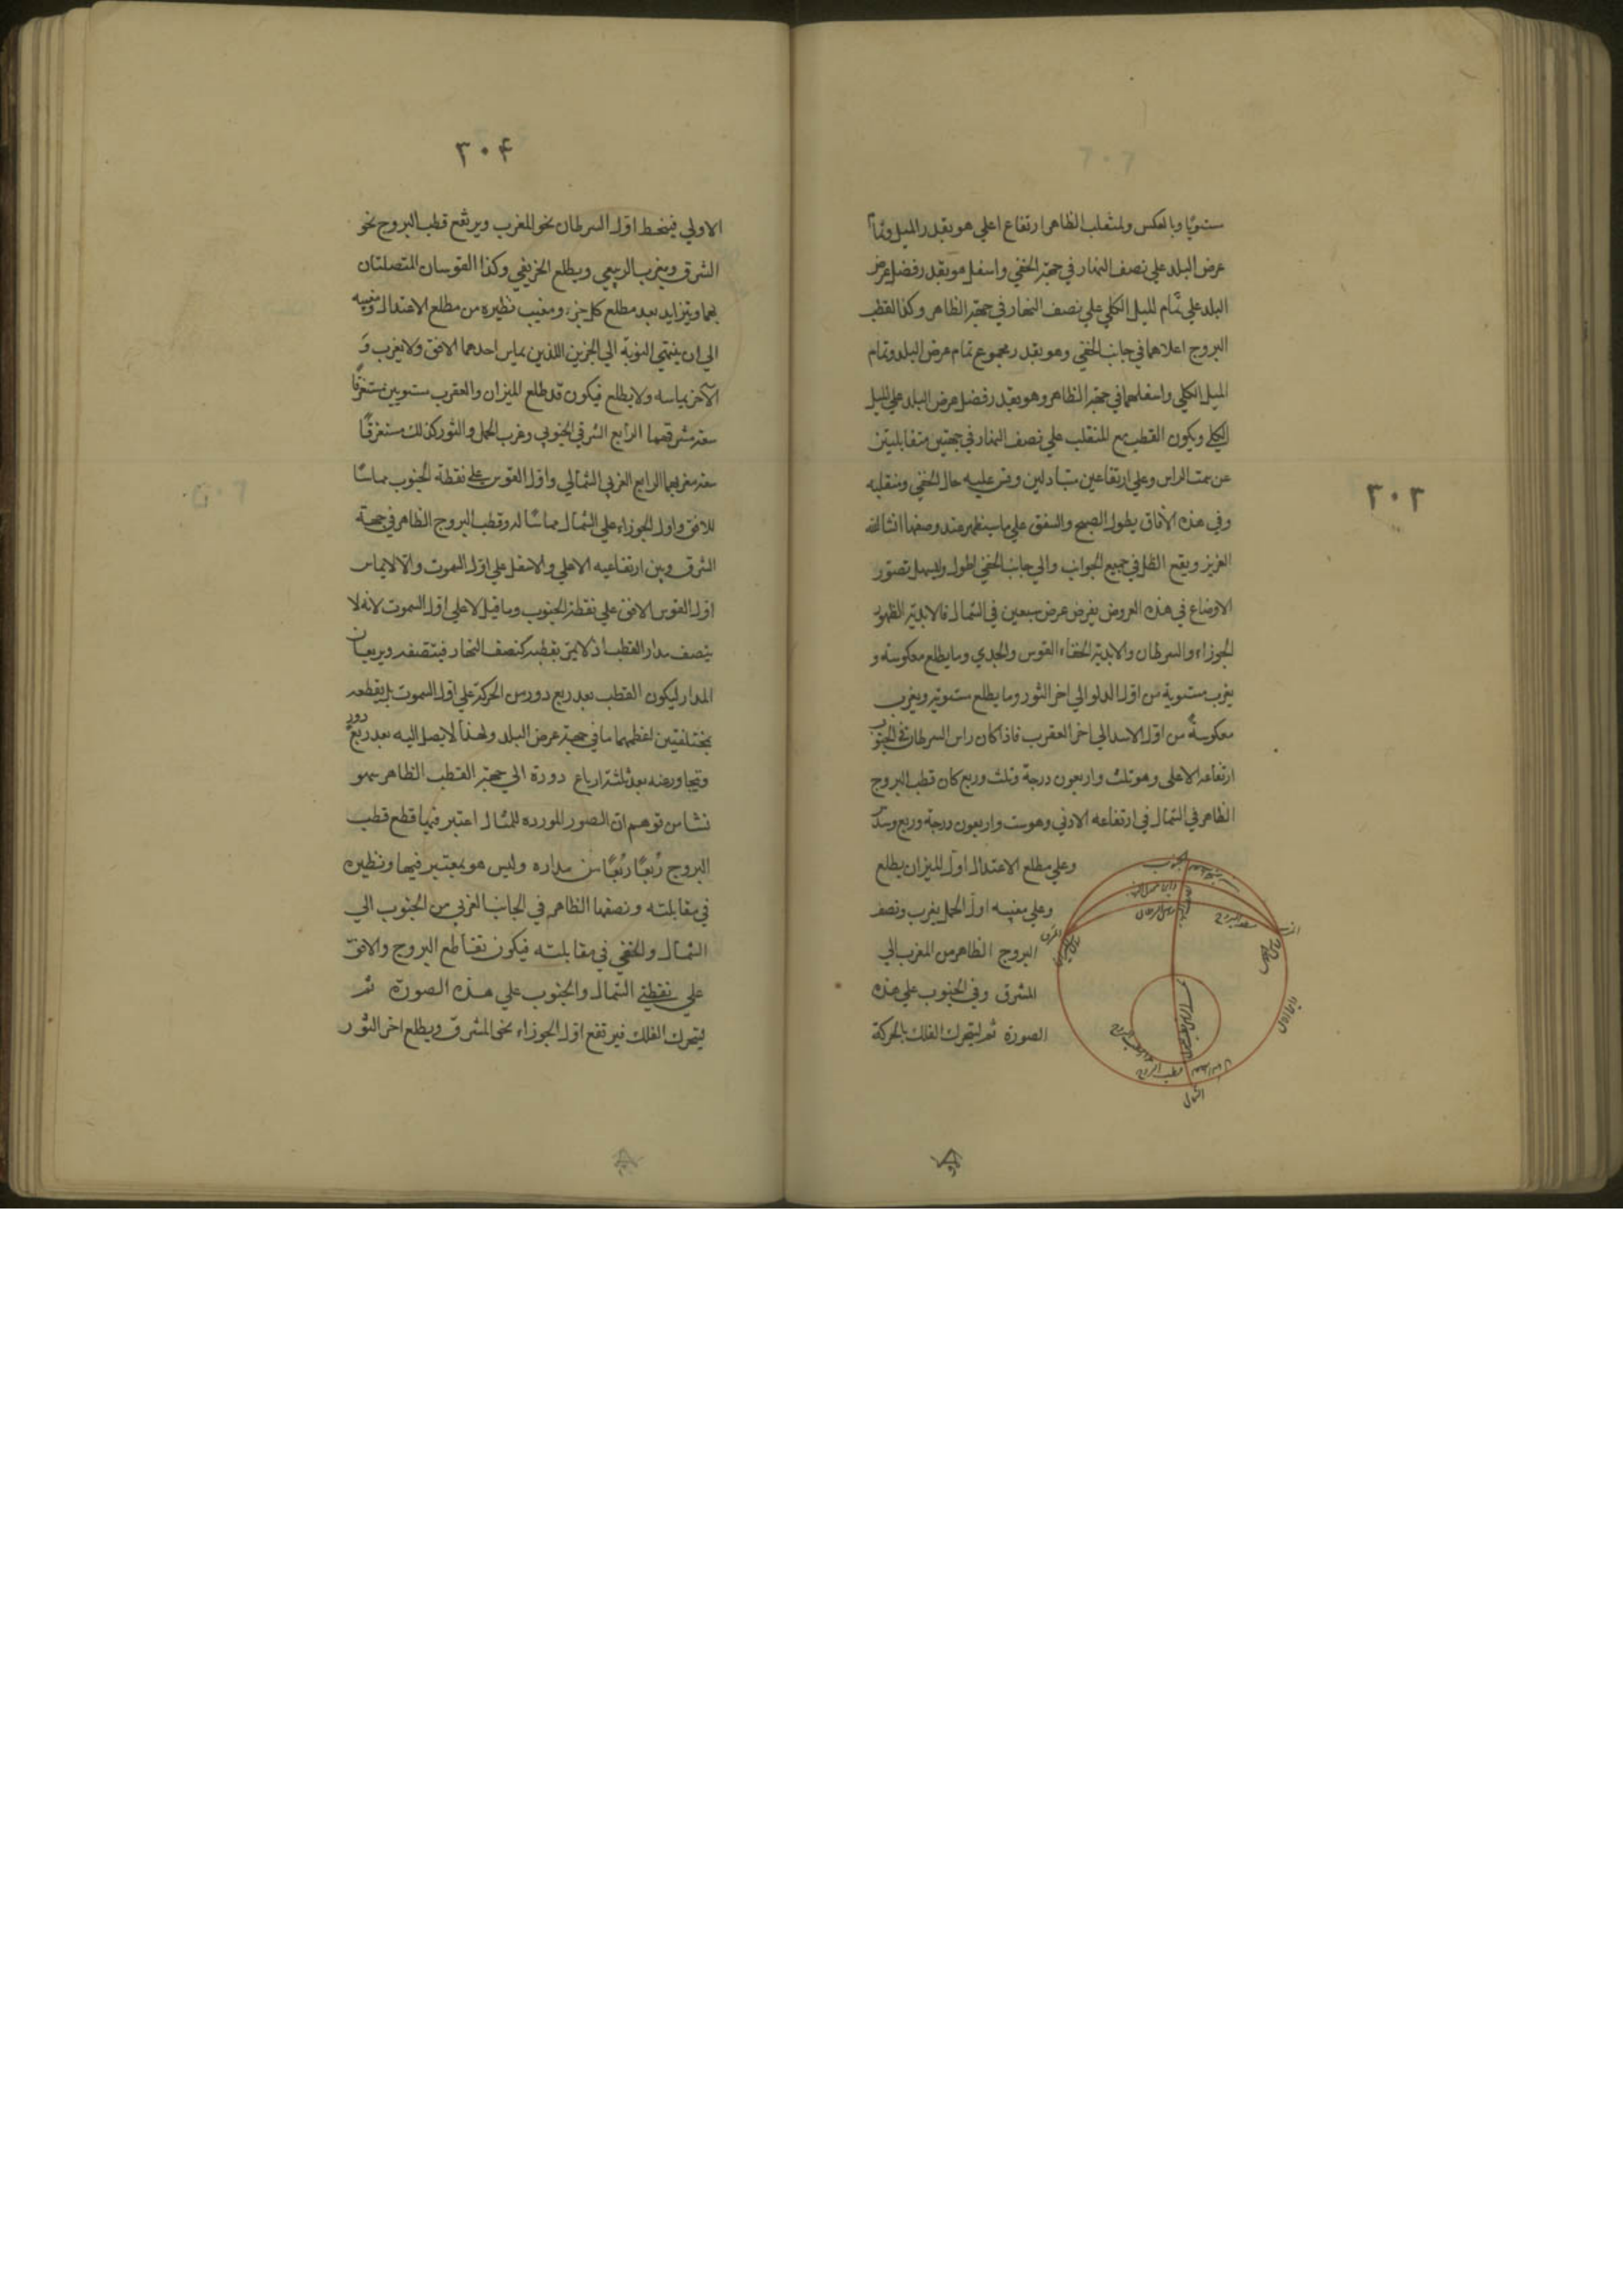 ٣٠٣
ستويًا وبالعكس ولمنقلب الظاهر ارتفاع اعلي هو بقدر الميل وتمام
عرض البلد علي نصف النهار في جهة الخفي واسفل هو بقدر فضل عرض
البلد علي تمام الميل الكلي علي نصف النهار في جهة الظاهر وكذا لقطب
البروج اعلاهما في جانب الخفي وهو بقدر مجموع تمام عرض البلد وتمام
الميل الكلي واسفلهما في جهة الظاهر وهو بقدر فضل عرض البلد علي الميل
الكلي ويكون القطب مع المنقلب علي نصف النهار في جهتين متقابلتين
عن سمت الراس وعلي ارتفاعين متبادلين وقس عليه حال الخفي ومنقلبه
وفي هذه الآفاق يطول الصبح والشفق علي ما سيظهر عند وصفهما انشا الله
العزيز ويقع الظل في جميع الجوانب والي جانب الخفي اطول وليسهل تصور
الاوضاع في هذه العروض بفرض عرض سبعين في الشمال فالابدية الظهور
الجوزاء والسرطان والابدية الخفاء القوس والجدي وما يطلع معكوسة و
يغرب مستوية من اول الدلو الي اخر الثور وما يطلع مستوية ويغرب
معكوسةً من اول الاسد الي اخر العقرب فاذا كان راس السرطان في الجنوب
ارتفاعه الاعلي وهو ثلث واربعون درجة وثلث وربع كان قطب البروج
الظاهر في الشمال في ارتفاعه الادني وهو ست واربعون درجة وربع وسدس
وعلي مطلع الاعتدال اول الميزان يطلع
وعلي مغيبه اول الحمل يغرب ونصف
البروج الظاهر من المغرب الي
المشرق وفي الجنوب علي هذه
الصورة ثم ليتحرك الفلك بالحركة
الجنوب
راس السرطان
الشمال
قطب البروج
٣٠۴
الاولي فينحط اول السرطان نحو المغرب ويرتفع قطب البروج نحو
الشرق ويغرب الربيعي ويطلع الخريفي وكذا القوسان المتصلتان
بهما ويتزايد بعد مطلع كل جزء ومغيب نظيره من مطلع الاعتدال ومغيبه
الي ان ينتهي النوبة الي الجزين اللذين يماس احدهما الافق ولا يغرب و
الآخر يماسه ولا يطلع فيكون قد طلع الميزان والعقرب مستويين مستغرقًا
سعة مشرقهما الرابع الشرقي الجنوبي وغرب الحمل والثور كذلك مستغرقًا
سعة مغربهما الرابع الغربي الشمالي واول القوس علي نقطة الجنوب مماسًا
للافق واول الجوزاء علي الشمال مماسًا له وقطب البروج الظاهر في جهة
الشرق وبين ارتفاعيه الاعلي والاسفل علي اول السموت والا لا يماس
اول القوس الافق علي نقطة الجنوب وما قيل لا علي اول السموت لانه لا
ينصف مدار القطب اذ لا يمر بقطبه كنصف النهار فينتصفه ويربعان
المدار ليكون القطب بعد ربع دور من الحركة علي اول السموت بل يقطعه
بمختلفتين اعظمهما ما في جهة عرض البلد ولهذا لا يصل اليه بعد ربع دور
ويتجاوز عنه بعد ثلثة ارباع دورة الي جهة القطب الظاهر سهو
نشا من توهم ان الصور المورده للمثال اعتبر فيها قطع قطب
البروج رُبعًا رُبعًا من مداره وليس هو بمعتبر فيها ونظيره
في مقابلته ونصفها الظاهر في الجانب الغربي من الجنوب الي
الشمال والخفي في مقابلته فيكون تقاطع البروج والافق
علي نقطتي الشمال والجنوب علي هذه الصورة ثم
ليتحرك الفلك فيرتفع اول الجوزاء نحو المشرق ويطلع اخر الثور